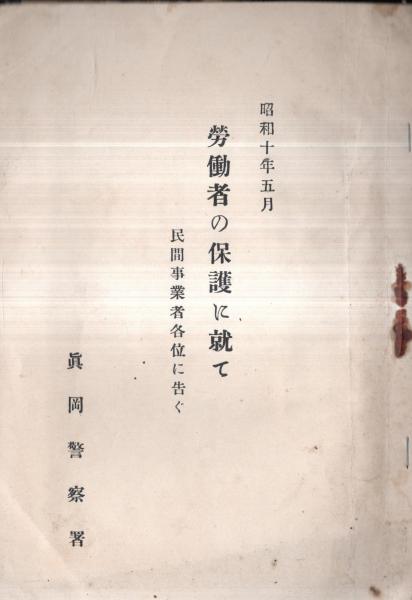 昭和十年五月
勞働者の保護に就て
民間事業者各位に告ぐ
眞岡警察署